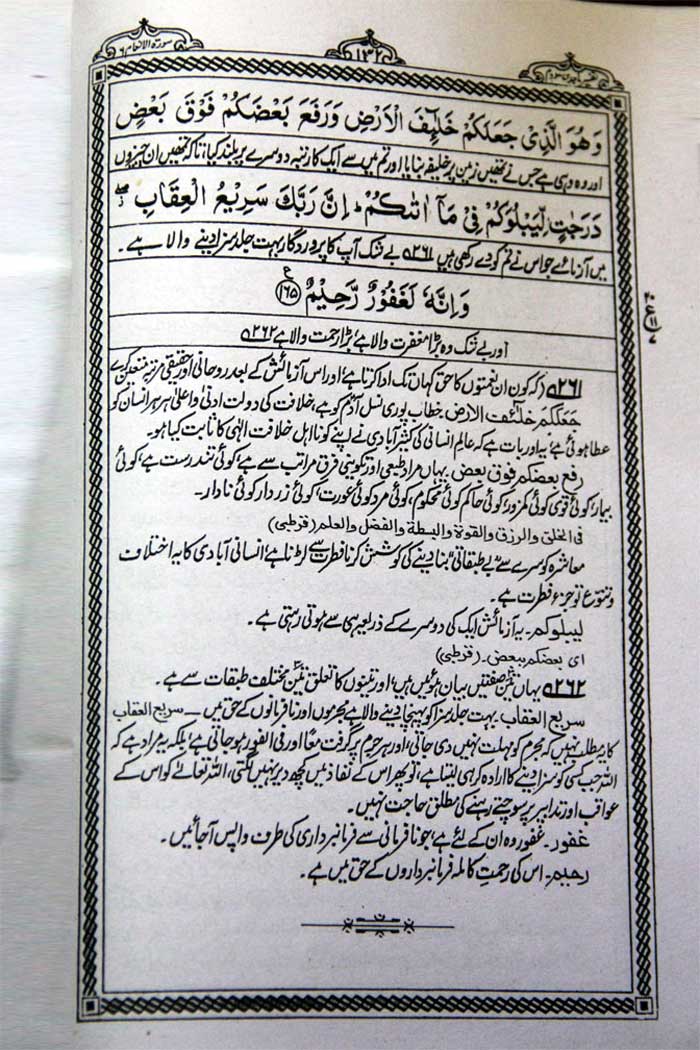 سورۃ الانعام ٦
۱۳۲
وَهُوَ الَّذِیْ جَعَلَكُمْ خَلٰٓئِفَ الْاَرْضِ وَرَفَعَ بَعْضَكُمْ فَوْقَ بَعْضٍ
اور وہ وہی ہے جس نے تمھیں زمین پر خلیفہ بنایا اور تم میں سے ایک کا رتبہ دوسرے پر بلند کیا، تاکہ تمھیں ان چیزوں
دَرَجٰتٍ لِّیَبْلُوَكُمْ فِیْ مَاۤ اٰتٰىكُمْ ؕ اِنَّ رَبَّكَ سَرِیْعُ الْعِقَابِ
میں آزمائے جو اس نے تم کو دے رکھی ہیں ۵۲۶۱ بے شک آپ کا پروردگار بہت جلد سزا دینے والا ہے۔
وَاِنَّهٗ لَغَفُوْرٌ رَّحِیْمٌ ۱۶۵
اور بے شک وہ بڑا مغفرت والا ہے، بڑا رحمت والا ہے ۵۲۶۲
۵۲۶۱ (کہ کون ان نعمتوں کا حق کہاں تک ادا کرتا ہے، اور اس آزمائش کے بعد روحانی اور حقیقی مرتبہ متعین کرے
جعلکم خلٰٓئف الارض۔ خطاب پوری نسل آدم کو ہے، خلافت کی دولت ادنیٰ و اعلیٰ، ہر ہر انسان کو
عطا ہوئی ہے، یہ اور بات ہے کہ عالم انسانی کی کثیر آبادی نے اپنے کو نا اہل خلافت الٰہی کا ثابت کیا ہو۔
رفع بعضکم فوق بعض۔ یہاں مراد طبعی اور تکوینی فرق مراتب سے ہے، کوئی تندرست ہے، کوئی
بیمار، کوئی قوی کوئی کمزور، کوئی حاکم کوئی محکوم، کوئی مرد کوئی عورت، کوئی زردار کوئی نادار۔
فی الخلق والرزق والقوۃ والبسطۃ والفضل والعلم (قرطبی)
معاشرہ کو سرے سے "بے طبقاتی" بنا دینے کی کوشش کرنا فطرت سے لڑنا ہے، انسانی آبادی کا یہ اختلاف
و تنوع تو جزء فطرت ہے۔
لیبلوکم۔ یہ آزمائش ایک کی دوسرے کے ذریعہ ہی سے ہوتی رہتی ہے۔
ای بعضکم ببعض۔ (قرطبی)
۵۲۶۲ یہاں تین صفتیں بیان ہوئیں ہیں، اور تینوں کا تعلق تین مختلف طبقات سے ہے۔
سریع العقاب۔ بہت جلد سزا کو پہنچا دینے والا ہے مجرموں اور نافرمانوں کے حق میں — سریع العقاب
کا یہ مطلب نہیں کہ مجرم کو مہلت نہیں دی جاتی، اور ہر جرم پر گرفت معًا اور فی الفور ہو جاتی ہے، بلکہ یہ مراد ہے کہ
اللہ جب کسی کو سزا دینے کا ارادہ کر ہی لیتا ہے، تو پھر اس کے نفاذ میں کچھ دیر نہیں لگتی، اللہ تعالےٰ کو اس کے
عواقب اور تدابیر پر سوچتے رہنے کی مطلق حاجت نہیں۔
غفور۔ غفور وہ ان کے لئے ہے، جو نافرمانی سے فرمانبرداری کی طرف واپس آجائیں۔
رحیم۔ اس کی رحمتِ کاملہ فرمانبرداروں کے حق میں ہے۔